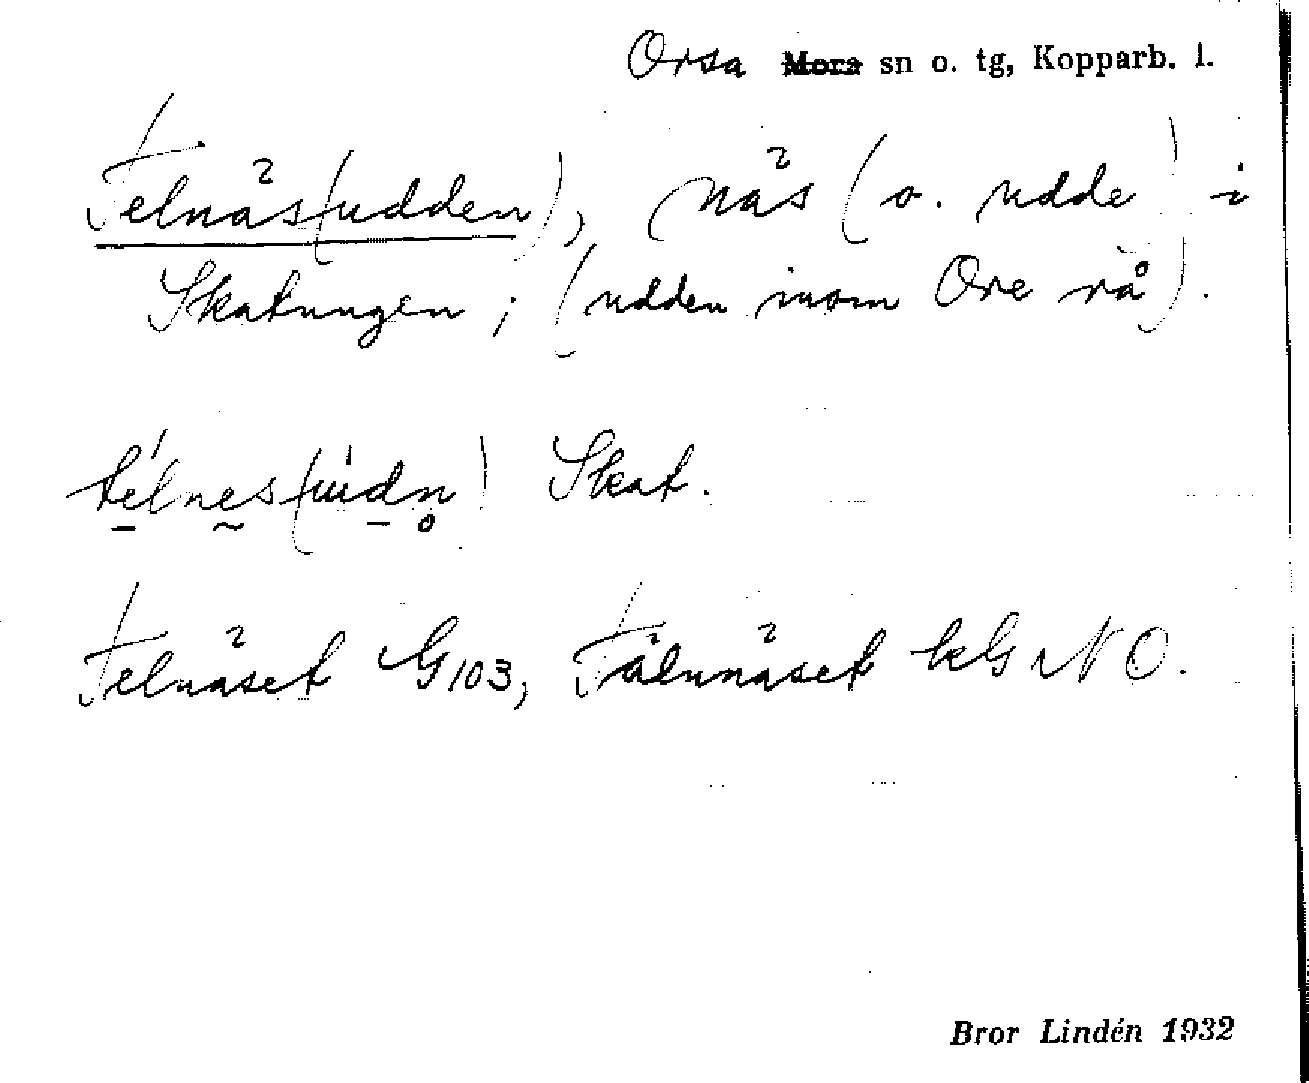 Orsa ~~Mora~~ sn o. tg, Kopparb. l.
Telnäs(udden), näs (o. udde) i
Skatungen; (udden inom Ore rå).
télnes(údn̥) Skat.
Telnäset G103, Tälnnäset kG NO.
Bror Lindén 1932